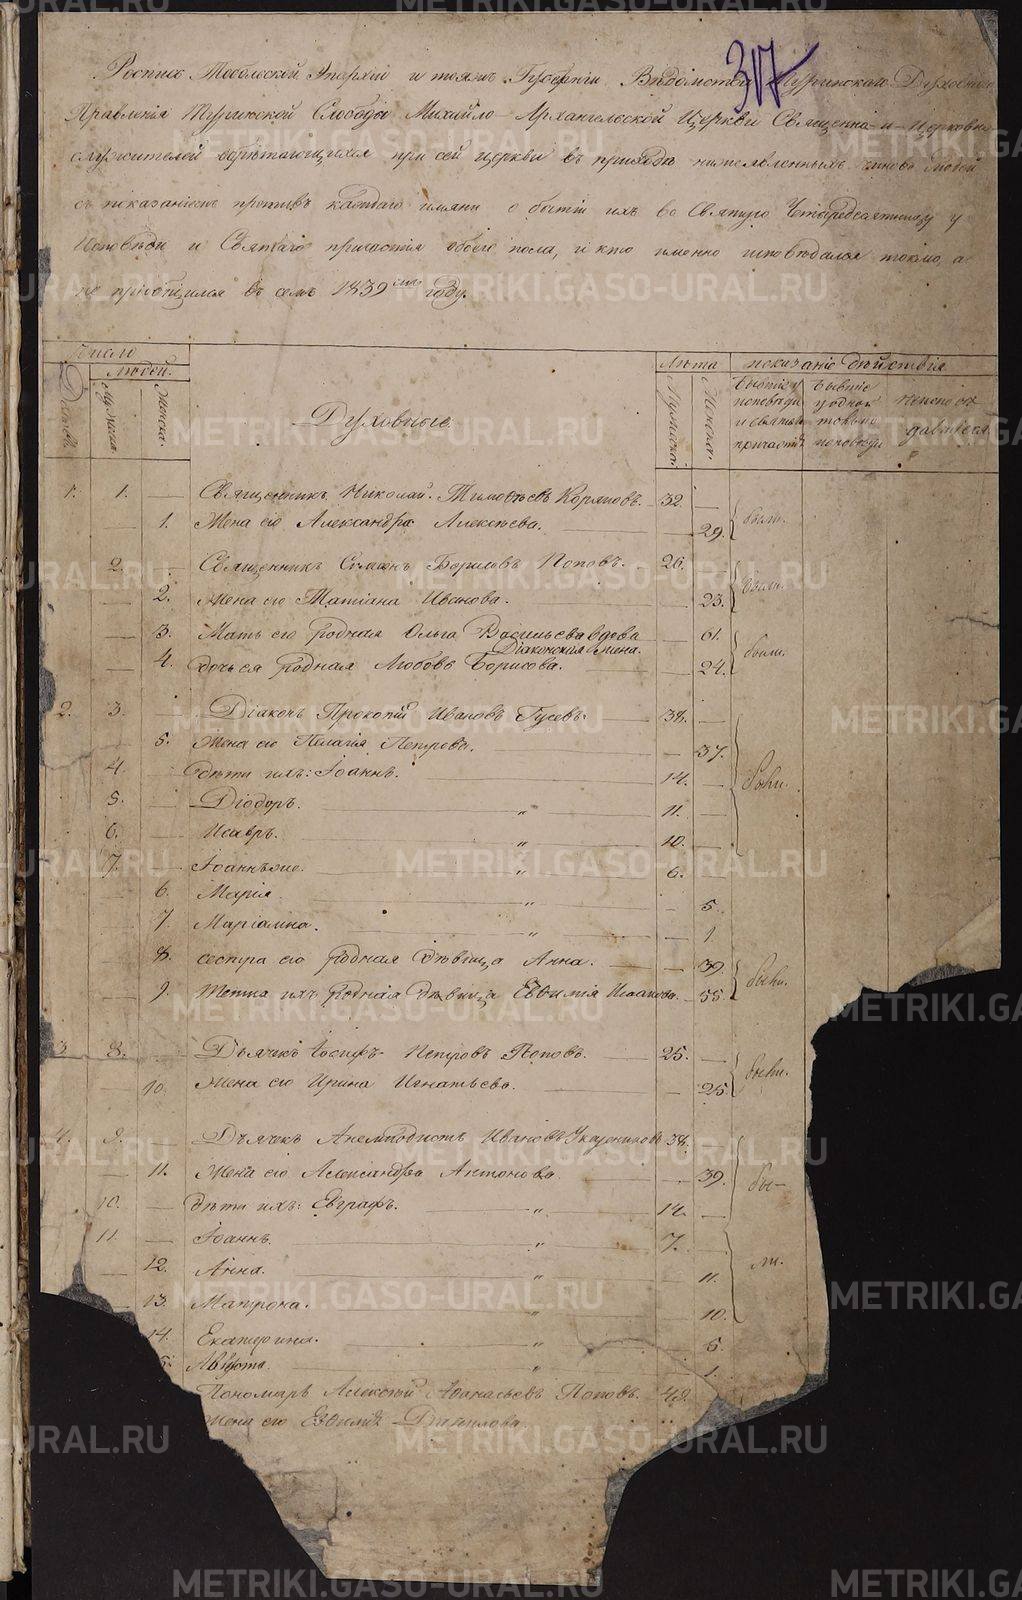 317
Роспись Тобольской Епархіи и тояжъ Губерніи Вѣдомства Туринскаго Духовнаго
Правленія Туринской Слободы Михайло-Архангельской Церкви Священно-и-Церковно
служителей обрѣтающихся при сей церкви въ приходѣ нижеявленныхъ чиновъ людей
съ показаніемъ противъ каждаго имяни о бытіи ихъ во Святую Четыредесятницу у
Исповѣди и Святаго причастія обоего пола, и кто именно исповѣдался токмо, а
не пріобщился въ семъ 1839 году.
Число Лѣта показаніе дѣйствія
Людей.
Домовъ Мужеска Женска. Духовные. Мужеска Женска. Бывшіе у исповѣди и святаго причастія Бывшіе у одной токмо исповѣди неисповѣдавшіеся
1. 1. — Священникъ Николай Тимоѳеевъ Коряковъ. 32. —
— 1. Жена его Александра Алексѣева. — 29. были.
2. — Священникъ Симеонъ Борисовъ Поповъ. 26. —
— 2. Жена его Татіана Иванова. — 23. были.
— 3. Мать его родная Ольга Васильева вдова — 61.
Діаконская жена.
— 4. Дочь ея родная Любовь Борисова. — 24. были.
2. 3. — Діаконъ Прокопій Ивановъ Гусевъ. 38. —
— 5. Жена его Пелагія Петрова. — 37.
4. — дѣти ихъ: Іоаннъ. 14. — были.
5. — Діодоръ. „ 11. —
6. — Исавръ. „ 10. —
7. — Іоаннъ же. „ 6. —
— 6. Марія. „ — 5.
— 7. Маріамна. „ — 1.
— 8. сестра его родная дѣвица Анна. — 39.
— 9. тетка ихъ родная дѣвица Евѳимія Исаакова. — 55. были.
3 8. — Дьячекъ Іосифъ Петровъ Поповъ. 25. —
— 10. Жена его Ирина Игнатьева. — 25. были.
4. 9. — Дьячекъ Анемподистъ Ивановъ 38.
— 11. Жена его Александра Антонова — 39. бы-
10. — дѣти ихъ: Евграфъ. „ 14. —
11. — Іоаннъ. „ 7. —
— 12. Анна. „ — 11. ли.
13. Матрона. „ — 10.
14. Екатерина. „ — 5.
5. Августа. „ — 1.
Пономарь Алексѣй Аѳанасьевъ Поповъ. 49.
Жена его Евѳимія Данилова.
METRIKI.GASO-URAL.RU